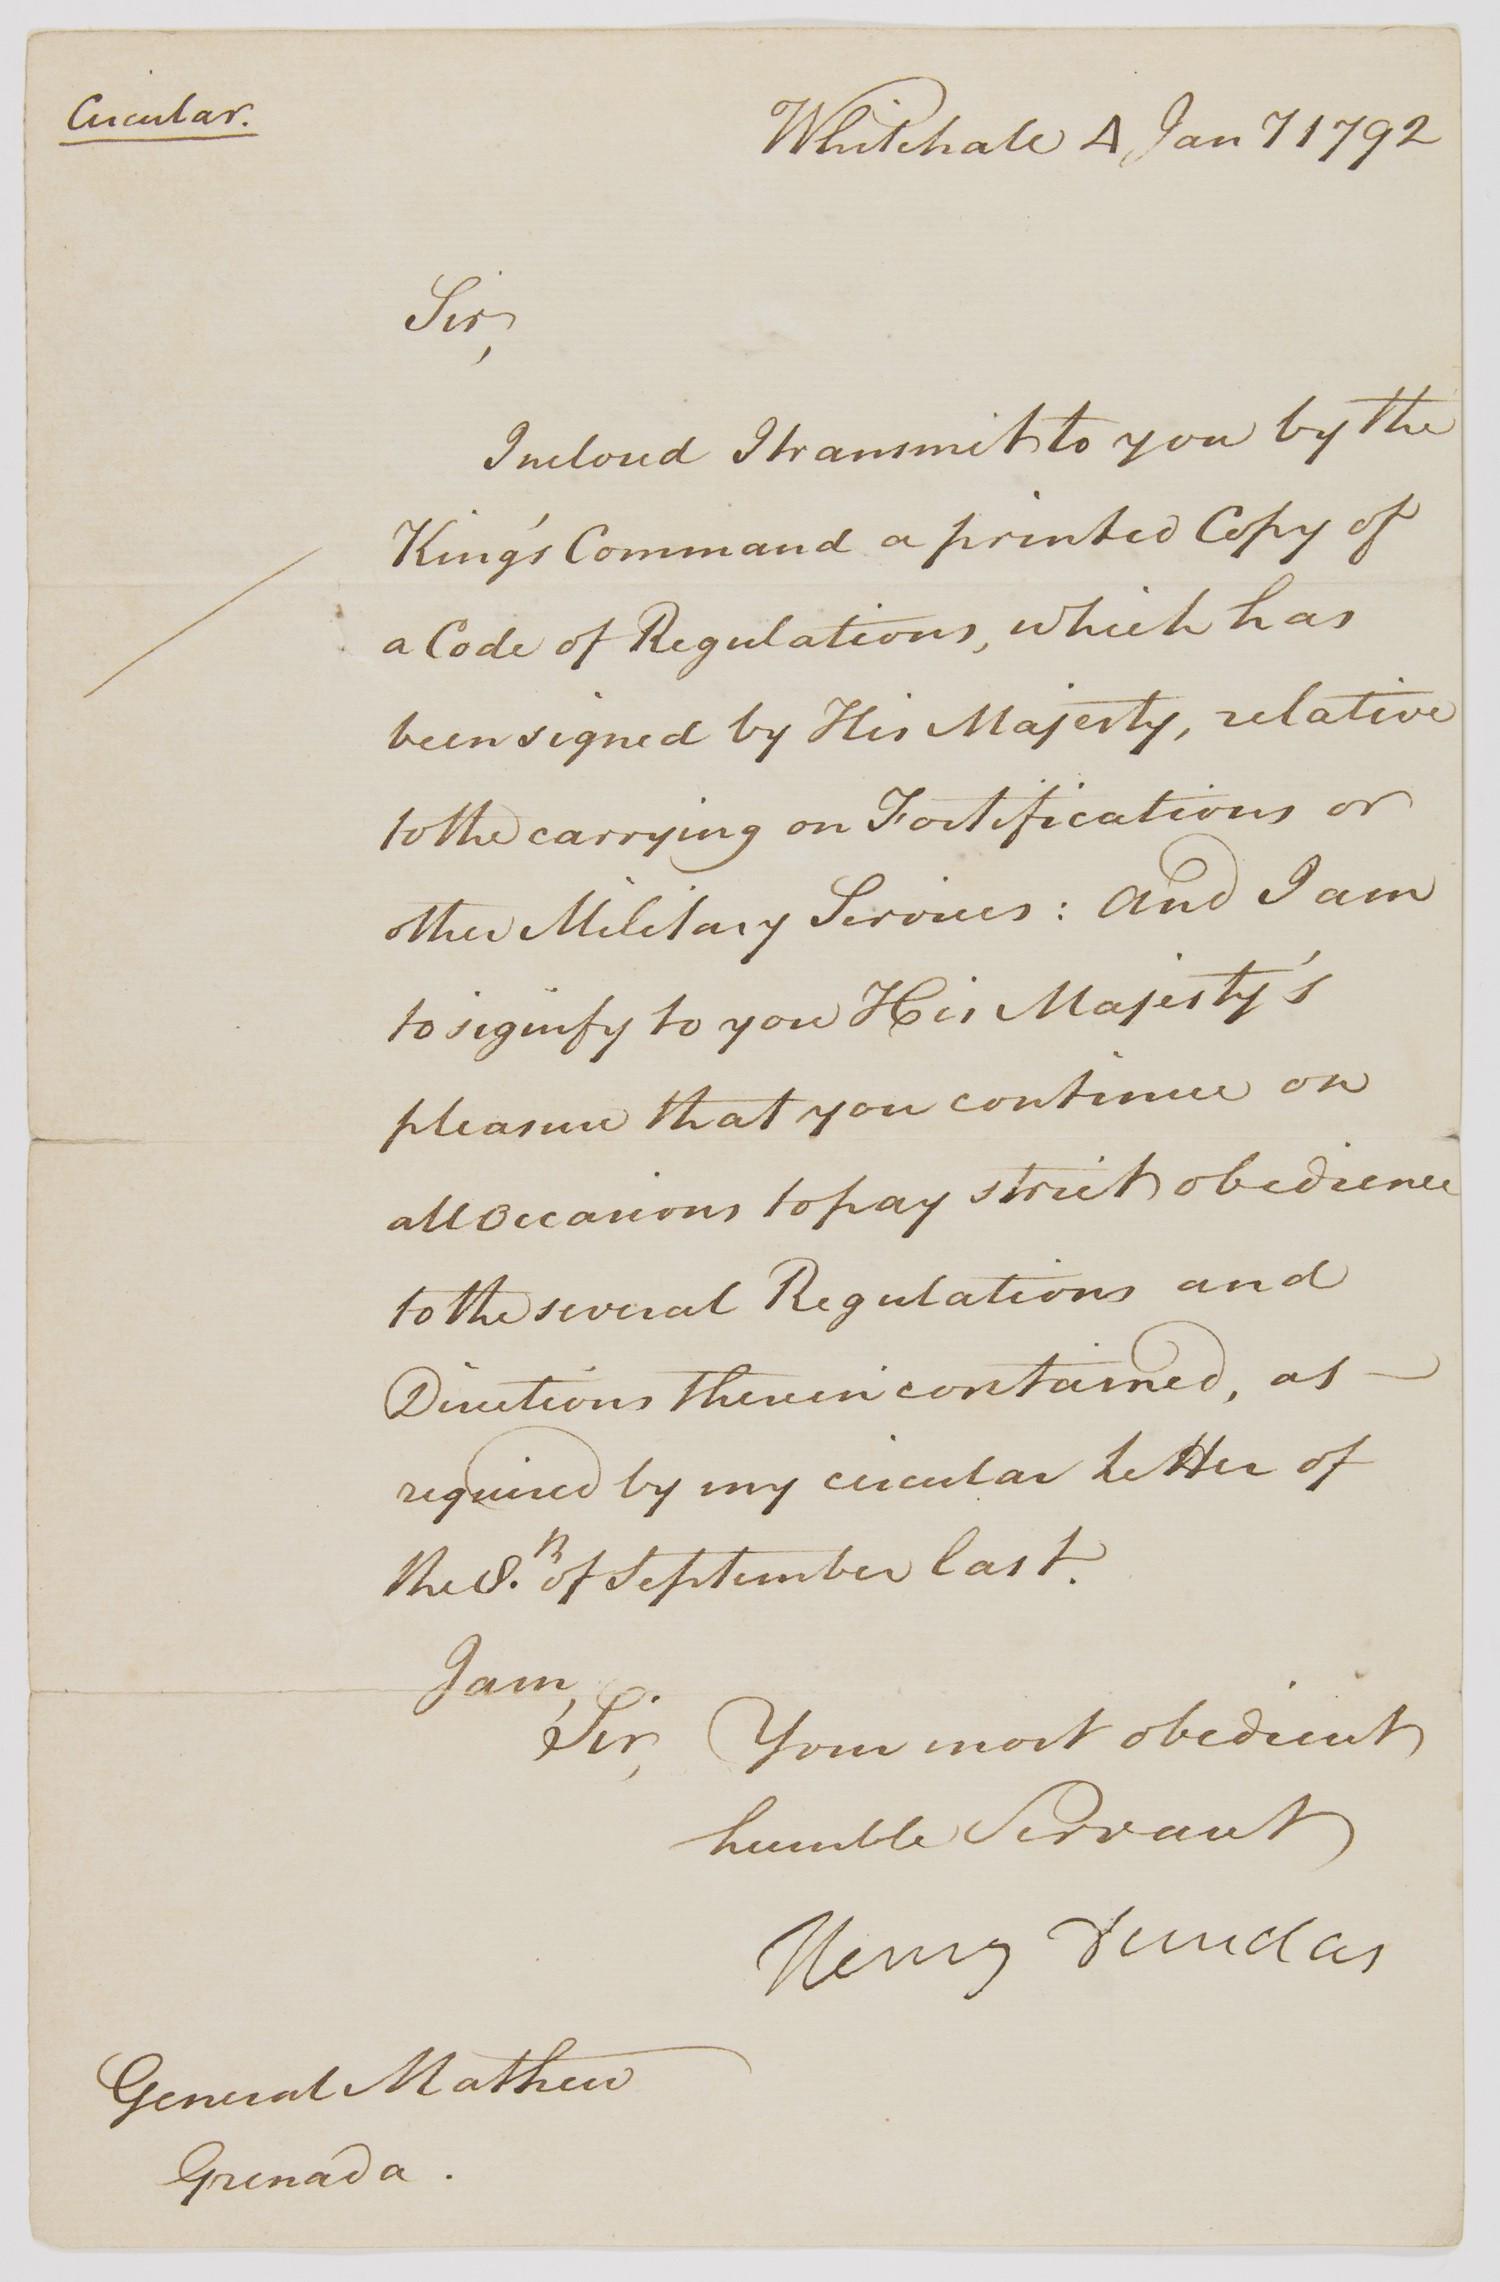 Circular.
Whitehall 4 Jany 1792
Sir,
Inclosed I transmit to you by the
King's Command a printed Copy of
a Code of Regulations, which has
been signed by His Majesty, relative
to the carrying on Fortifications or
other Military Services: and I am
to signify to you His Majesty's
pleasure that you continue on
all Occasions to pay strict obedience
to the several Regulations and
Directions therein contained, as —
required by my circular letter of
the 8.th of September last.
I am,
Sir, Your most obedient
humble Servant
Henry Dundas
General Mathew
Grenada.